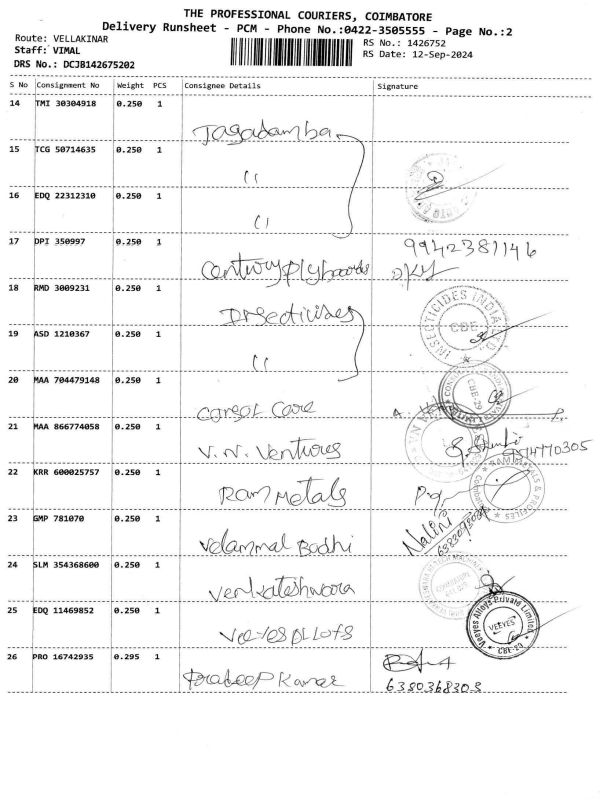 THE PROFESSIONAL COURIERS, COIMBATORE
Delivery Runsheet - PCM - Phone No.:0422-3505555 - Page No.:2
Route: VELLAKINAR
RS No.: 1426752
Staff: VIMAL
RS Date: 12-Sep-2024
DRS No.: DCJB142675202
S No Consignment No Weight PCS Consignee Details Signature
14 TMI 30304918 0.250 1
Jagadamba
15 TCG 50714635 0.250 1
16 EDQ 22312310 0.250 1
17 DPI 350997 0.250 1
9942381146
Century plyboards
18 RMD 3009231 0.250 1
Insecticides
INSECTICIDES INDIA LTD.
CBE
19 ASD 1210367 0.250 1
20 MAA 704479148 0.250 1
CBE-29
Care
21 MAA 866774058 0.250 1
V.N. Ventures
22 KRR 600025757 0.250 1
Ram Metals
RAM METALS & PROFILES
23 GMP 781070 0.250 1
Nalini
Velammal Bodhi
24 SLM 354368600 0.250 1
Venkateshwara
25 EDQ 11469852 0.250 1
Veeyes Alloys Private Limited
VEEYES
CBE-29
26 PRO 16742935 0.295 1
Pradeep Kumar
6380368303